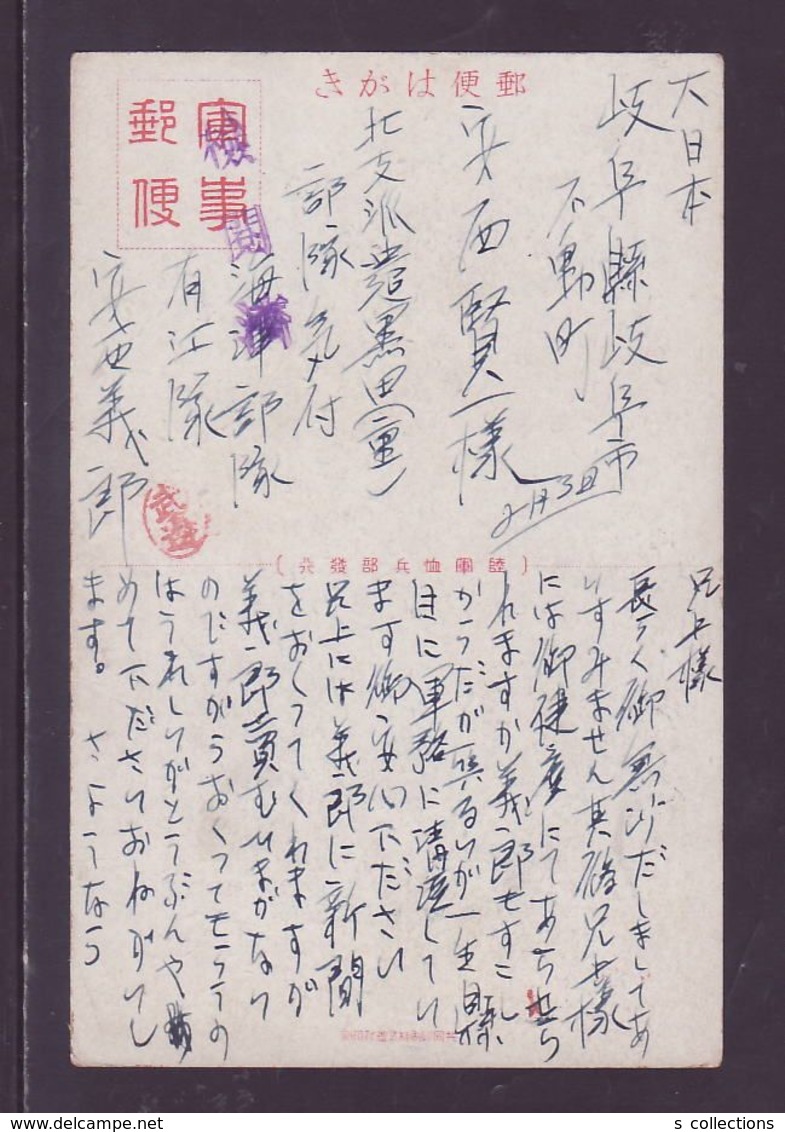 郵便はがき
軍事
郵便
検閲
大日本
岐阜縣岐阜市
不動町
安西賢一様
2月3日
北支派遣黒田(重)
部隊気付
海津部隊
有江隊
安西義郎
武遊
(陸軍恤兵部發行)
兄上様
長らく御無沙だしましてあ
いすみません其後兄上様
には御健康にてあらせら
れますか義郎もすこし
からだが弱いが一生懸
目に軍務に
ます御安心下ださい
兄上には義郎に新聞
をおくってくれますが
義郎賣むひまがない
のですがうおくってもらうの
はうれしいがとうぶんや
めて下ださいおねがいし
ます。さようなら
s collections